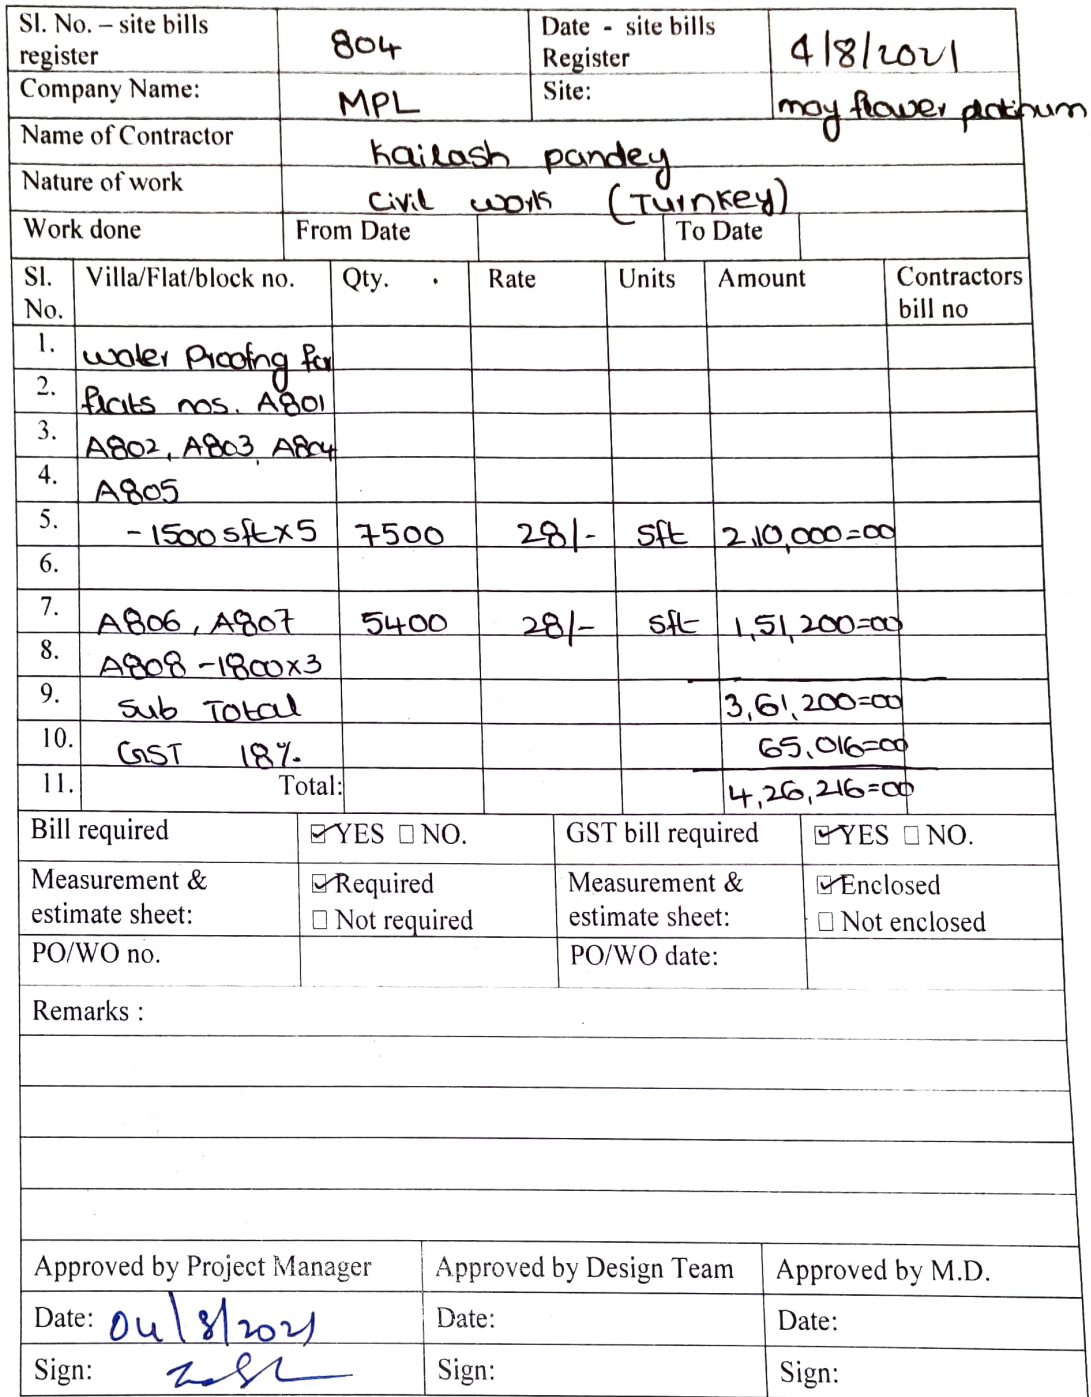 Sl. No. – site bills register 804 Date - site bills Register 4/8/2021
Company Name: MPL Site: may flower platinum
Name of Contractor Kailash pandey
Nature of work civil work (Turnkey)
Work done From Date To Date
Sl. No. Villa/Flat/block no. Qty. Rate Units Amount Contractors bill no
1. water Proofing for
2. flats nos. A801
3. A802, A803, A804
4. A805
5. - 1500 sft x 5 7500 28/- sft 2,10,000=00
6.
7. A806, A807 5400 28/- sft 1,51,200=00
8. A808 - 1800x3
9. Sub Total 3,61,200=00
10. GST 18% 65,016=00
11. Total: 4,26,216=00
Bill required ☑YES ☐ NO. GST bill required ☑YES ☐ NO.
Measurement & estimate sheet: ☑Required ☐ Not required Measurement & estimate sheet: ☑Enclosed ☐ Not enclosed
PO/WO no. PO/WO date:
Remarks :
Approved by Project Manager Approved by Design Team Approved by M.D.
Date: 04/8/2021 Date: Date:
Sign: Sign: Sign: